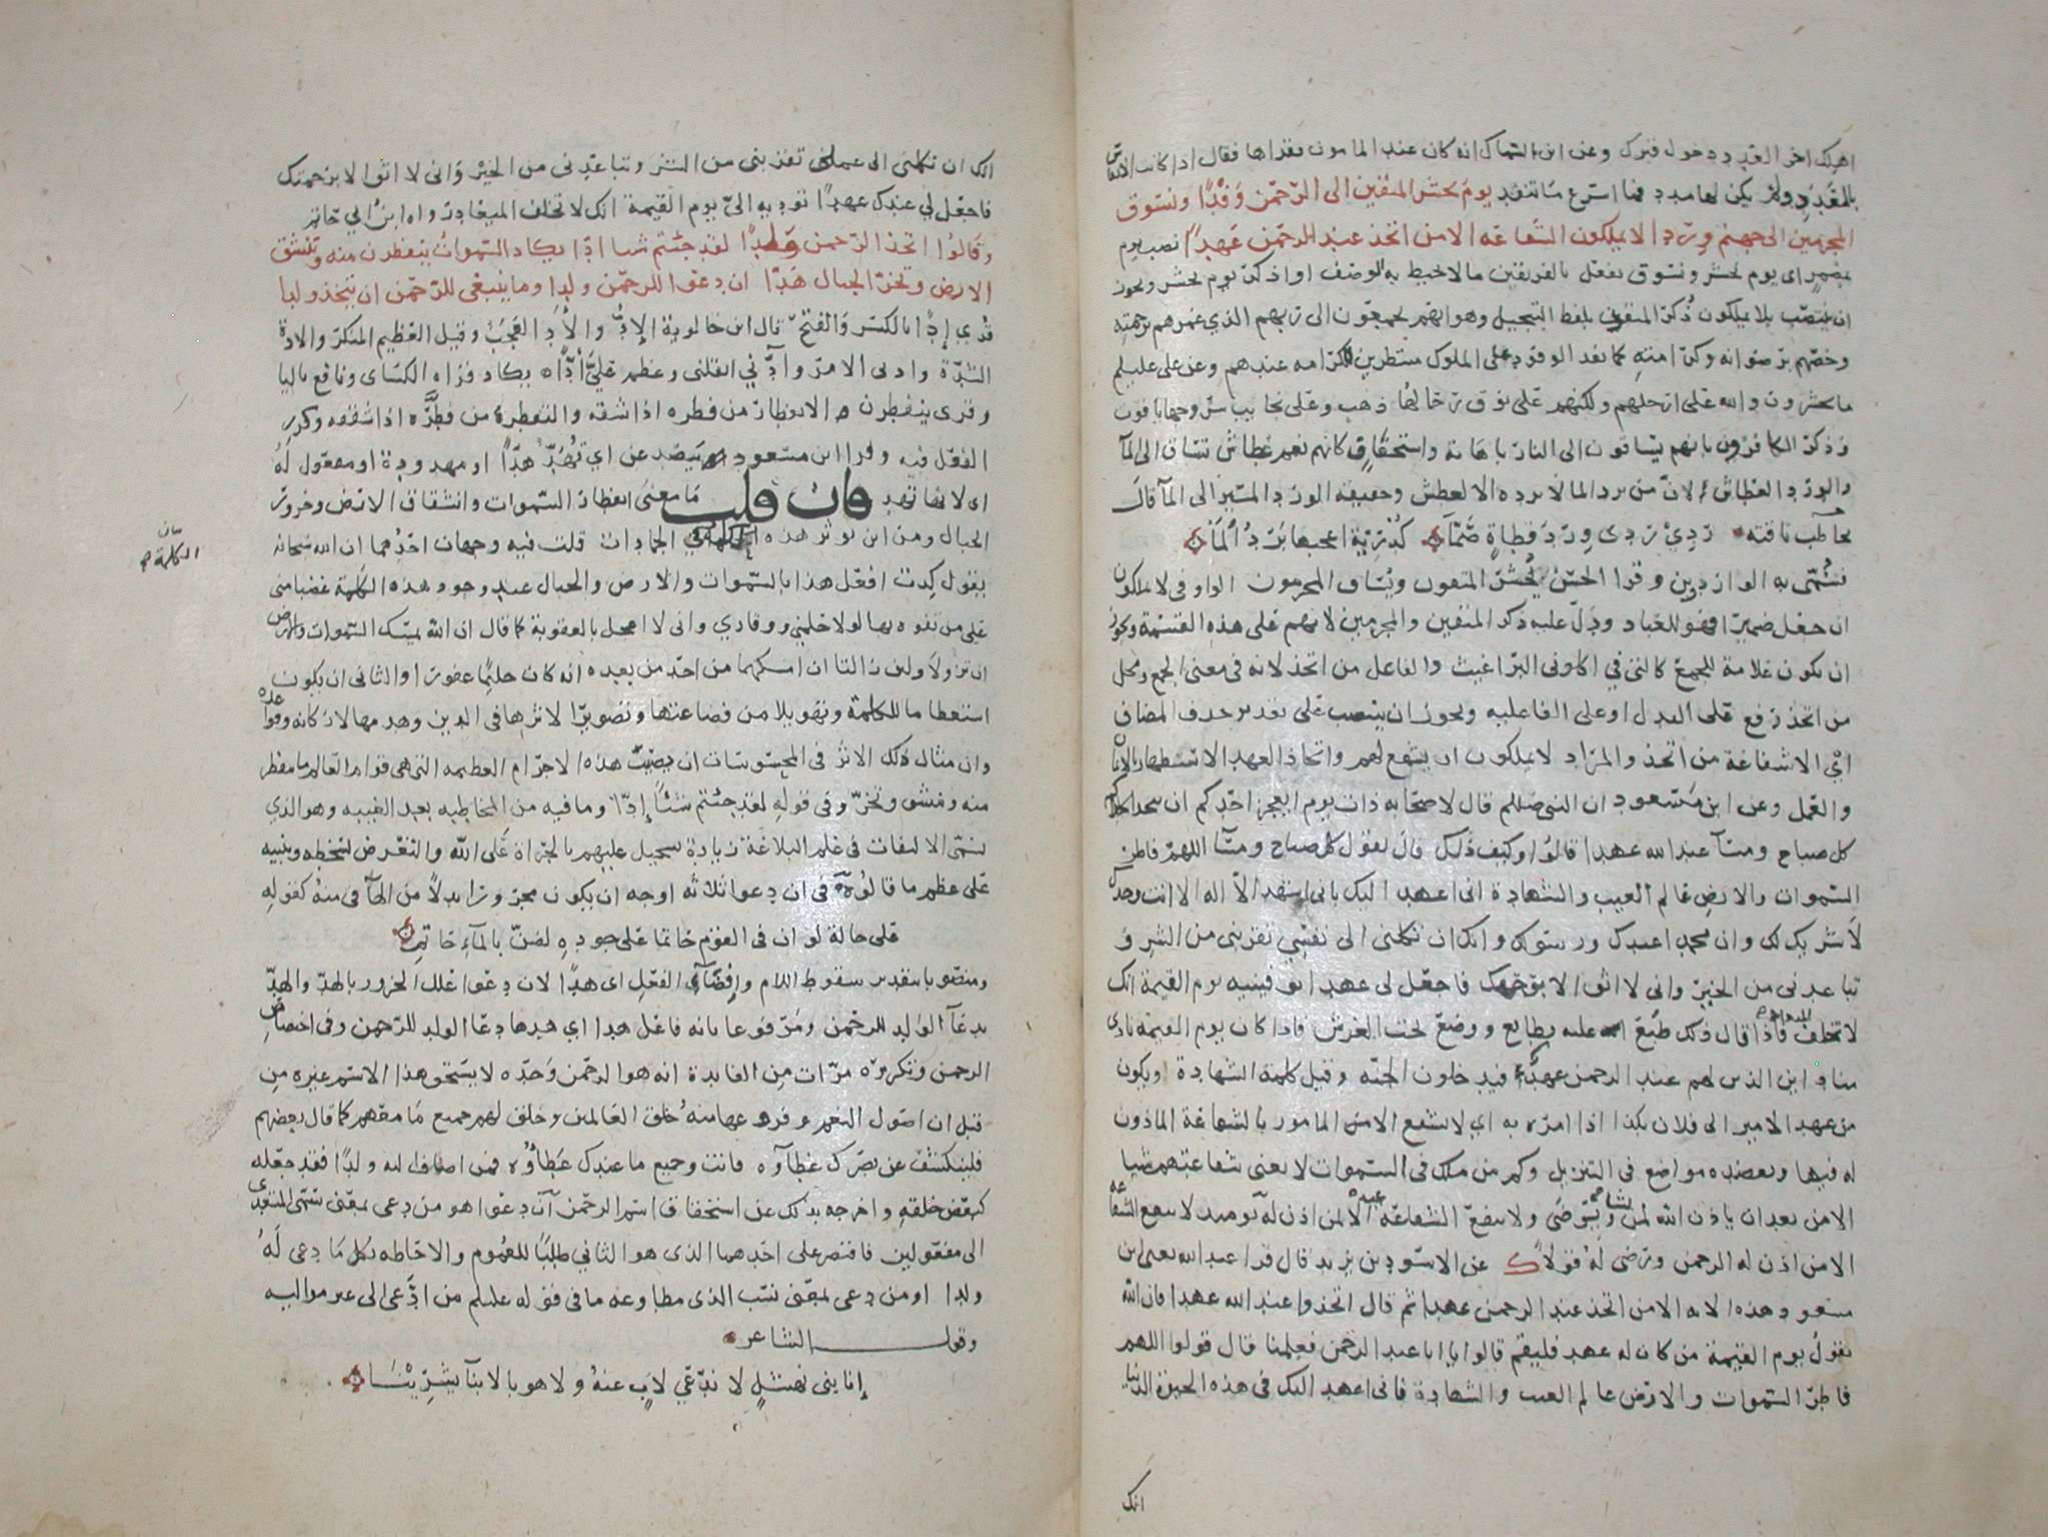 اهلك اخر العدد دخول قبرك وعن ابن السماك انه كان عند المامون فقراها فقال اذا كانت الانفاس
بالعدد ولم يكن لها مدد فما اسرع ما تنفد يوم نحشر المتقين الى الرحمن وفدا ونسوق
المجرمين الى جهنم وردا لا يملكون الشفاعه الا من اتخذ عند الرحمن عهدا نصب يوم
بمضمر اى يوم نحشر ونسوق نفعل بالفريقين ما لا يحيط به الوصف او اذكر يوم نحشر ويجوز
ان ينتصب بلا يملكون ذكر المتقون بلفظ التبجيل وهو انهم يجمعون الى ربهم الذي غمرهم برحمته
وخصهم برضوانه وكرامته كما يفد الوفود على الملوك منتظرين للكرامه عندهم وعن على عليلم
ما يحشرون والله على ارجلهم ولكنهم على نوق رحالها ذهب وعلى نجايب سروجها ياقوت
وذكر الكافرون بانهم يساقون الى النار باهانة واستخفاف كانهم نعم عطاش تساق الى المآ
والورد العطاش لان من يرد الما لا يرده الا لعطش وحقيقه الورد المسير الى المآ قال
يخاطب ناقته ردي ردى ورد قطاة صمآ كدرية اعجبها برد المآ
فسمى به الواردون وقرا الحسن يحشر المتقون ويساق المجرمون الواو فى لا يملكون
ان جعل ضميرا فهو للعباد ودل عليه ذكر المتقين والمجرمين لانهم على هذه القسمة ويجوز
ان تكون علامة للجمع كالتى في اكلونى البراغيث والفاعل من اتخذ لانه فى معنى الجمع ومحل
من اتخذ رفع على البدل او على الفاعليه ويجوز ان ينتصب على تقدير حذف المضاف
اي الا شفاعة من اتخذ والمراد لا يملكون ان يشفع لهم واتخاذ العهد الاستظهار بالايمان
والعمل وعن ابن مسعود ان النبي صللم قال لاصحابه ذات يوم ايعجز احدكم ان يتخذ
كل صباح ومسآ عند الله عهدا قالوا وكيف ذلك قال يقول كل صباح ومسآ اللهم فاطر
السموات والارض عالم الغيب والشهادة انى اعهد اليك بانى اشهد الا اله الا انت وحدك
لا شريك لك وان محمدا عبدك ورسولك وانك ان تكلنى الى نفسي تقربنى من الشر و
تباعدنى من الخير وانى لا اثق الا برحمتك فاجعل لى عهدا توفينيه يوم القيمة انك
لا تخلف الميعاد فاذا قال ذلك طبع عليه بطابع ووضع تحت العرش فاذا كان يوم القيمه نادى
مناد اين الذين لهم عند الرحمن عهد فيدخلون الجنه وقيل كلمة الشهادة او يكون
من عهد الامير الى فلان بكذا اذا امره به اي لا يشفع الا من المامور بالشفاعة الماذون
له فيها وتعضده مواضع فى التنزيل وكم من ملك فى السموات لا تغنى شفاعتهم شيا
الا من بعد ان ياذن الله لمن يشا ويرضى ولا تنفع الشفاعة عنده الا لمن اذن له يومئذ لا تنفع الشفاعه
الا من اذن له الرحمن ورضى له قولا عن الاسود بن يزيد قال قرا عبد الله يعنى ابن
مسعود هذه الايه الا من اتخذ عند الرحمن عهدا ثم قال اتخذوا عند الله عهدا فان الله
يقول يوم القيمة من كان له عهد فليقم قالوا يا ابا عبد الرحمن فعلمنا قال قولوا اللهم
فاطر السموات والارض عالم الغيب والشهادة فانى اعهد اليك فى هذه الحيوة الدنيا
انك
انك ان تكلنى الى عملى تقربنى من الشر وتباعدنى من الخير وانى لا اثق الا برحمتك
فاجعل لي عندك عهدا توديه الى يوم القيمة انك لا تخلف الميعاد رواه ابن ابي حاتم
وقالوا اتخذ الرحمن ولدا لقد جئتم شيا ادا يكاد السموات يتفطرن منه وتنشق
الارض وتخر الجبال هدا ان دعوا للرحمن ولدا وما ينبغى للرحمن ان يتخذ ولدا
قري إدا بالكسر والفتح قال ابن خالوية الإد والأد العجب وقيل العظيم المنكر والادة
الشدة وادنى الامر وآدني اثقلنى وعظم على أدا يكاد قراه الكسائى ونافع باليا
وقرى ينفطرن الانفطار من فطره اذا شقه والتفطر من فطره اذا شققه وكرر
الفعل فيه وقرا ابن مسعود يتصدعن اي تهد هدا او مهدودة او مفعول له
اى لانها تهد فان قلت ما معنى انفطار السموات وانشقاق الارض وخرور
الجبال ومن اين توثر هذه الكلمة في الجمادات قلت فيه وجهان احدهما ان الله سبحانه
يقول كدت افعل هذا بالسموات والارض والجبال عند وجود هذه الكلمة غضبا منى
على من تفوه بها لولا حلمي ووقاري وانى لا اعجل بالعقوبة كما قال ان الله يمسك السموات والارض
ان تزولا ولئن زالتا ان امسكهما من احد من بعده انه كان حليما غفورا والثانى ان يكون
استعظاما للكلمة وتهويلا من فضاعتها وتصويرا لاثرها فى الدين وهدمها لاركانه وقواعده
وان مثال ذلك الاثر فى المحسوسات ان يصيب هذه الاجرام العظيمه التى هى قوام العالم ما تنفطر
منه وتنشق وتخر وفى قوله لقد جئتم شئا إدا وما فيه من المخاطبه بعد الغيبه وهو الذي
يسمى الالتفات فى علم البلاغة زيادة تسجيل عليهم بالجراة على الله والتعرض لسخطه وتنبيه
على عظم ما قالوه فى ان دعوا ثلاثه اوجه ان يكون مجرورا بدلا من الهآ فى منه كقوله
على حالة لو ان فى القوم حاتما على جوده لضن بالمآء حاتم
ومنصوبا بتقدير سقوط اللام وافضآء الفعل اى هدا لان دعوا علل الخرور بالهد والهد
بدعآ الولد للرحمن ومرفوعا بانه فاعل هدا اي هدها دعآ الولد للرحمن وفى اختصاص
الرحمن وتكريره مرات من الفايدة انه هو الرحمن وحده لا يستحق هذا الاسم غيره من
قبل ان اصول النعم وفروعها منه خلق العالمين وخلق لهم جميع ما معهم كما قال بعضهم
فلينكشف عن بصرك غطآوه فانت وجميع ما عندك عطآؤه فمن اضاف اليه ولدا فقد جعله
كبعض خلقه واخرجه بذلك عن استحقاق اسم الرحمن ان دعوا هو من دعى بمعنى سمى المتعدى
الى مفعولين فاقتصر على احدهما الذى هو الثاني طلبا للعموم والاحاطه بكل ما دعى له
ولدا او من دعى بمعنى نسب الذى مطاوعه ما فى قوله عليلم من ادعى الى غير مواليه
وقول الشاعر
إنا بنى نهشل لا ندعي لاب عنه ولا هو بالابنآ يشرينا
بيان
الكلمة صح